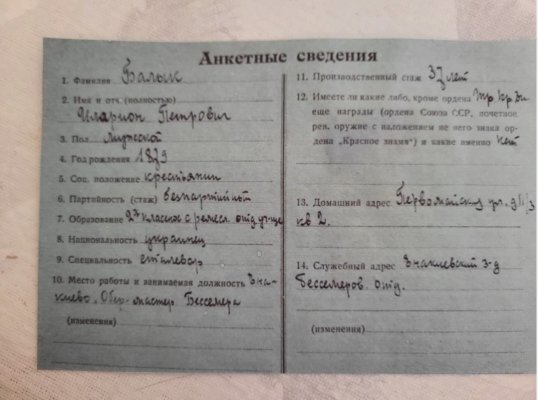 Анкетные сведения
1. Фамилия Балык
2. Имя и отч. (полностью)
Иларион Петрович
3. Пол мужской
4. Год рождения 1879
5. Соц. положение крестьянин
6. Партийность (стаж) безпартийный
7. Образование 2х класное с ремесл. отд. уч-ще
8. Национальность украинец
9. Специальность сталевар
10. Место работы и занимаемая должность Ена-
киево. Обер-мастер Бессемера
(изменения)
11. Производственный стаж 37 лет
12. Имеете ли какие либо, кроме ордена Тр. Кр. Зн.
еще награды (ордена Союза ССР, почетное
рев. оружие с наложением не него знака ор-
дена „Красное знамя") и какие именно нет
13. Домашний адрес Первомайская ул. д
кв 2.
14. Служебный адрес Енакиевский з-д
бессемеров. отд.
(изменения)